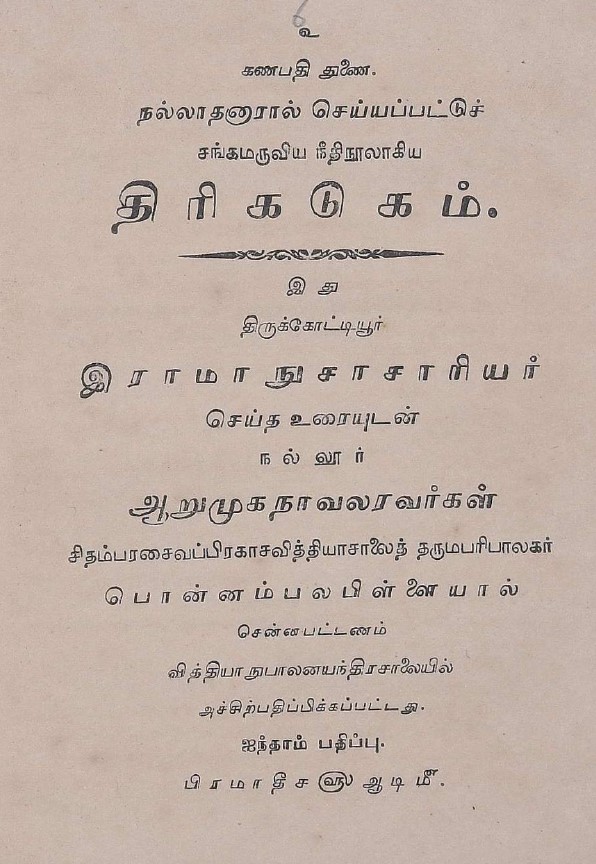 6
உ
கணபதி துணை.
நல்லாதனாரால் செய்யப்பட்டுச்
சங்கமருவிய நீதிநூலாகிய
திரிகடுகம்.
இது
திருக்கோட்டியூர்
இராமாநுசாசாரியர்
செய்த உரையுடன்
நல்லூர்
ஆறுமுகநாவலரவர்கள்
சிதம்பரசைவப்பிரகாசவித்தியாசாலைத் தருமபரிபாலகர்
பொன்னம்பலபிள்ளையால்
சென்னபட்டணம்
வித்தியாநுபாலனயந்திரசாலையில்
அச்சிற்பதிப்பிக்கப்பட்டது.
ஐந்தாம் பதிப்பு.
பிரமாதீச௵ ஆடி௴.